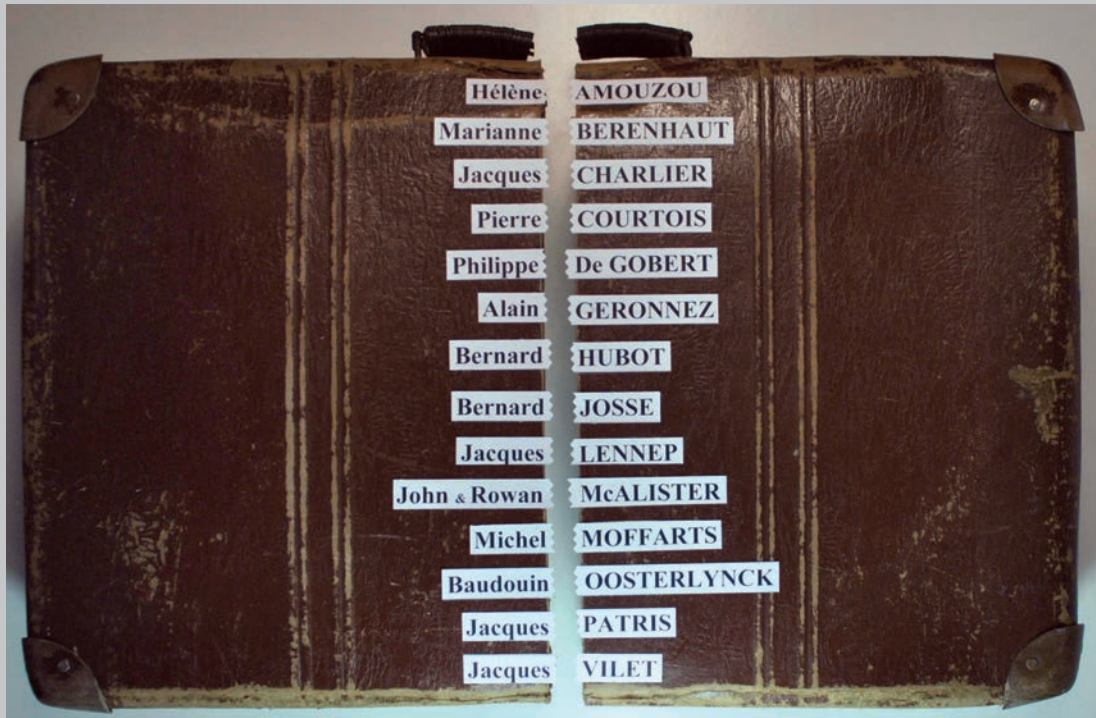 Hélène AMOUZOU
Marianne BERENHAUT
Jacques CHARLIER
Pierre COURTOIS
Philippe De GOBERT
Alain GERONNEZ
Bernard HUBOT
Bernard JOSSE
Jacques LENNEP
John & Rowan McALISTER
Michel MOFFARTS
Baudouin OOSTERLYNCK
Jacques PATRIS
Jacques VILET